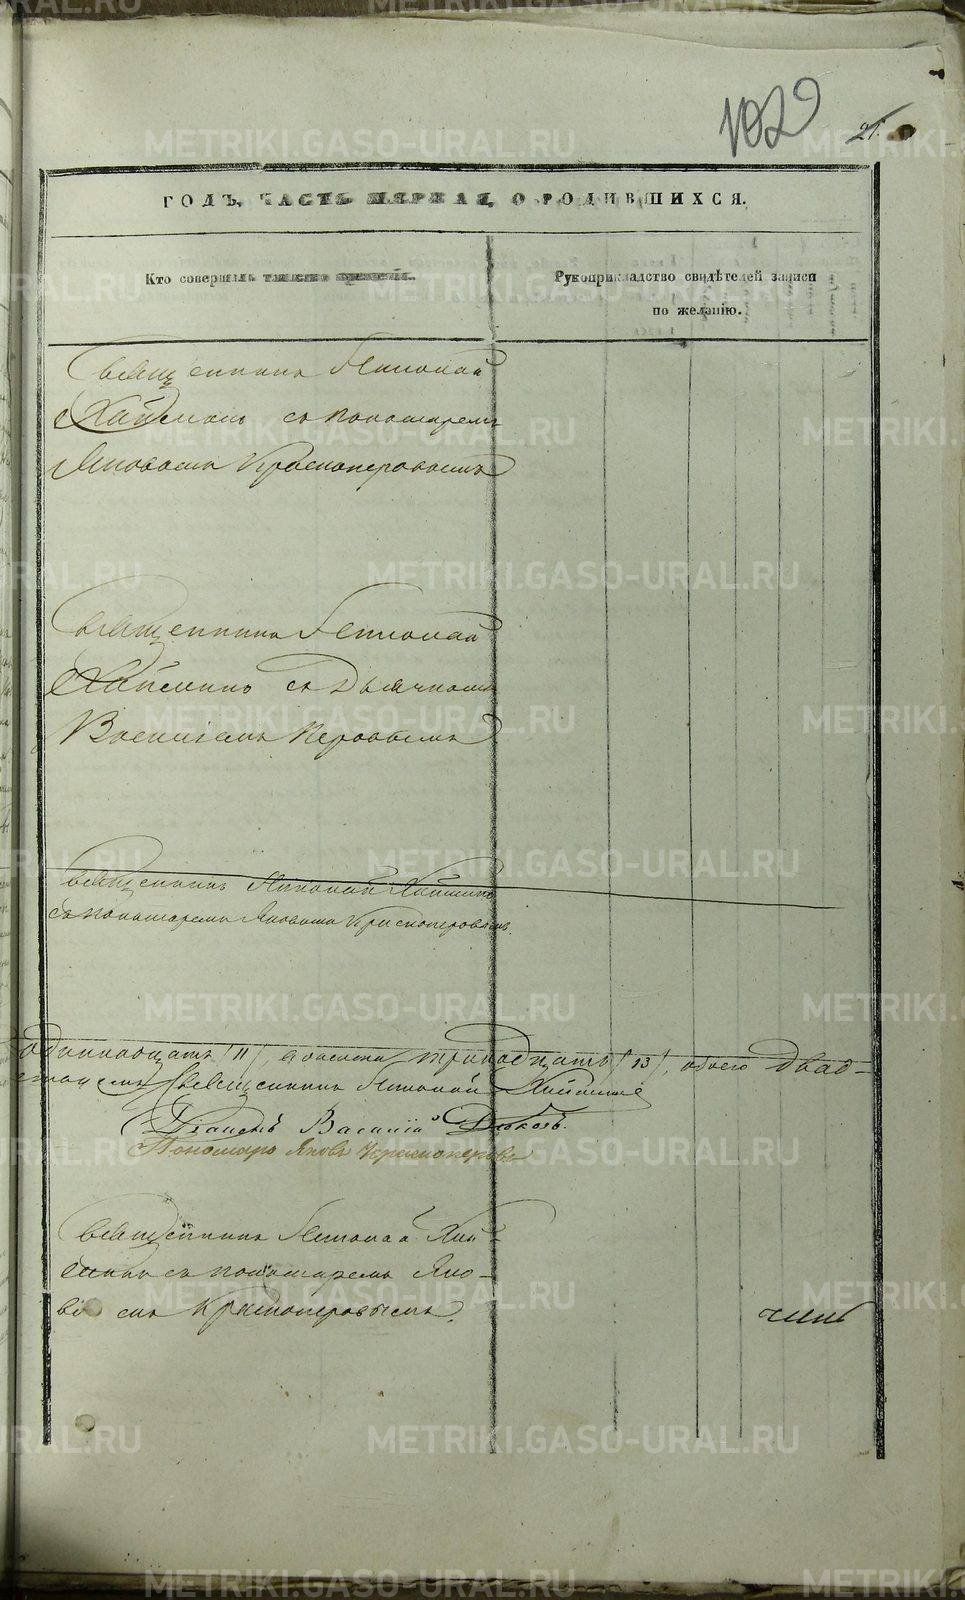 1029
21.
ГОДЪ, ЧАСТЬ ПЕРВАЯ, О РОДИВШИХСЯ.
Кто совершалъ таинство крещенія.
Рукоприкладство свидѣтелей записи
по желанію.
Священникъ Николай
съ пономаремъ
Яковомъ Красноперовымъ
Священникъ Николай
съ Дьячкомъ
Василіемъ
Священникъ Николай
съ пономаремъ Яковомъ Красноперовымъ.
одиннадцать /11/, а женска тринадцать /13/, обоего двад-
Священникъ Николай
Василій
Пономарь Яковъ Красноперовъ
Священникъ Николай
съ пономаремъ Яко-
вомъ Красноперовымъ.
METRIKI.GASO-URAL.RU